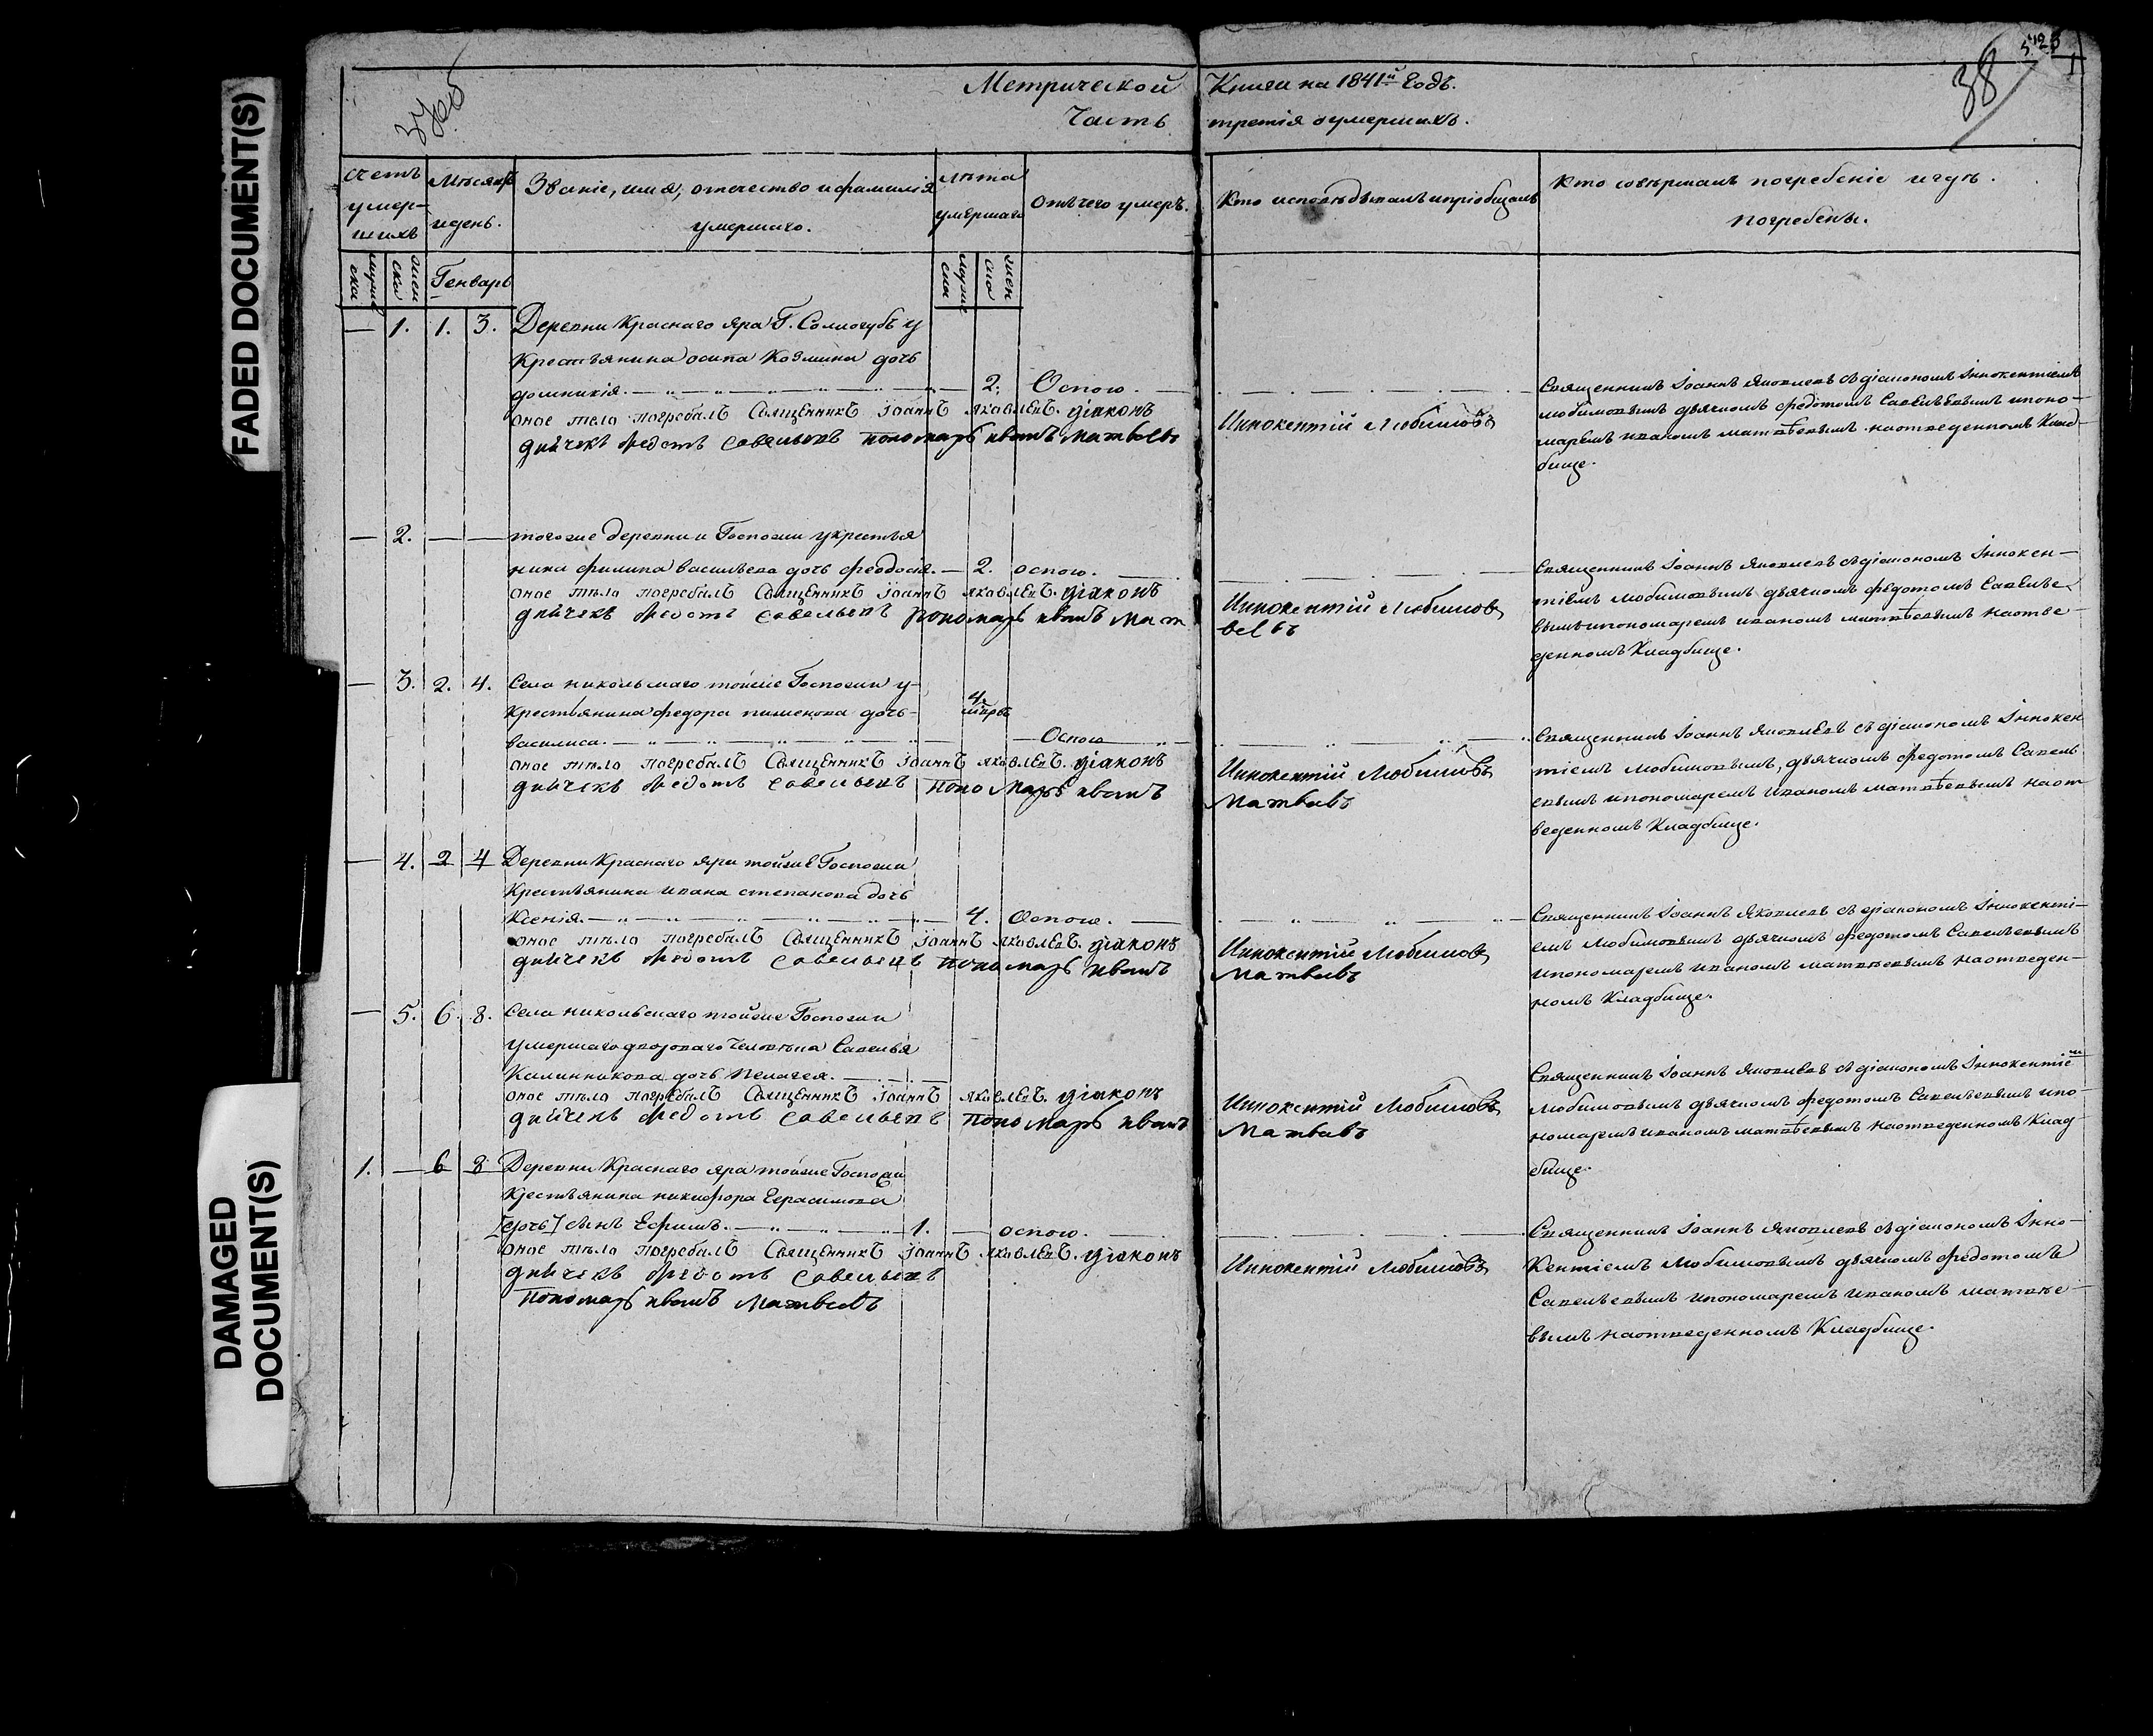 FADED DOCUMENT(S)
DAMAGED
DOCUMENT(S)
38
Метрической Книги на 1841й Годъ.
Часть третія о умершихъ.
Счетъ умер-шихъ
Мѣсяцъ и день.
Званіе, имя, отечество и фамилія умершаго.
лѣта умершаго
Отъ чего умеръ.
Кто исповѣдывалъ и пріобщалъ
Кто совершалъ погребеніе и гдѣ погребены.
мужеска
женска
Генварь
мужеска
женска
— 1. 1. 3. Деревни Краснаго яра Г. Сологубъ у
Крестьянина осипа Козмина дочь
домникія. — 2. Оспою.
оное тело погребалъ Священникъ Іоаннъ Яковлевъ. діаконъ Иннокентій Любимовъ
дьячекъ Федотъ Савельевъ пономарь иванъ матвевъ
Священникъ Іоаннъ Яковлевъ съ діакономъ Іннокентіемъ
любимовымъ дьячкомъ федотомъ Савельевымъ и поно-
маремъ иваномъ матвѣевымъ на отведенномъ клад-
бище.
— 2. — — тогоже деревни и Госпожи у крестья
нина филипа васильева дочь феодосія. — 2. оспою.
оное тѣло погребалъ Священникъ Іоаннъ Яковлевъ. діаконъ Иннокентій Любимовъ
дьячекъ Федотъ Савельевъ пономарь иванъ мат
вевъ
Священникъ Іоаннъ Яковлевъ съ діакономъ Іннокен-
тіемъ любимовымъ дьячкомъ федотомъ Савелье
вымъ и пономаремъ иваномъ матвѣевымъ на отве-
денномъ Кладбище.
— 3. 2. 4. Села никольскаго тойже Госпожи у-
Крестьянина федора пименова дочь-
василиса. — 4. Оспою
оное тѣло погребалъ Священникъ Іоаннъ Яковлевъ. діаконъ Иннокентій Любимовъ
дьячекъ Федотъ Савельевъ пономарь иванъ Матвевъ
Священникъ Іоаннъ Яковлевъ съ діакономъ Іннокен
тіемъ любимовымъ, дьячкомъ федотомъ Савель
евымъ и пономаремъ Иваномъ матвѣевымъ на от
веденномъ Кладбище.
— 4. 2 4 Деревни Краснаго яра тойже Госпожи
Крестьянина ивана степанова дочь
Ксенія. — 4. Оспою.
оное тѣло погребалъ Священникъ Іоаннъ Яковлевъ. діаконъ Иннокентій Любимовъ
дьячекъ Федотъ Савельевъ пономарь иванъ Матвевъ
Священникъ Іоаннъ Яковлевъ съ діакономъ Іннокенті-
емъ любимовымъ дьячкомъ федотомъ Савельевымъ
и пономаремъ иваномъ матвѣевымъ на отведен-
номъ Кладбище.
— 5. 6. 8. Села никольскаго тойже Госпожи
умершаго двороваго человѣка Савелья
Калинникова дочь пелагея. —
оное тѣло погребалъ Священникъ Іоаннъ Яковлевъ. діаконъ Иннокентій Любимовъ
дьячекъ Федотъ Савельевъ пономарь иванъ Матвевъ
Священникъ Іоаннъ Яковлевъ съ діакономъ Іннокентіем
любимовымъ дьячкомъ федотомъ Савельевымъ и по-
номаремъ иваномъ матвѣевымъ на отведенномъ Клад
бище.
1. — 6 8 Деревни Краснаго яра тойже Госпожи
Крестьянина никифора Герасимова
[дочь] сынъ Ефимъ. — 1. — оспою.
оное тѣло погребалъ Священникъ Іоаннъ Яковлевъ. діаконъ Иннокентій Любимовъ
дьячекъ Федотъ Савельевъ
пономарь иванъ Матвевъ
Священникъ Іоаннъ Яковлевъ съ діакономъ Інно-
Кентіемъ любимовымъ дьячкомъ федотомъ
Савельевымъ и пономаремъ иваномъ матвѣе-
вымъ на отведенномъ Кладбище.